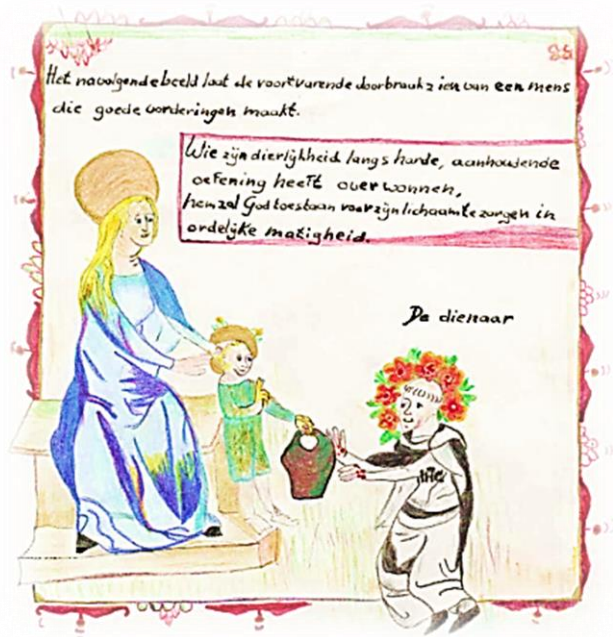 Het navolgende beeld laat de voortvarende doorbraak zien van een mens
die goede vorderingen maakt.
Wie zijn dierlijkheid langs harde, aanhoudende
oefening heeft overwonnen,
hem zal God toestaan voor zijn lichaam te zorgen in
ordelijke matigheid.
De dienaar